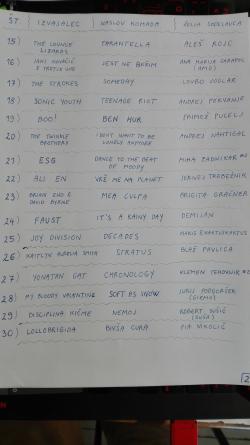 ŠT. IZVAJALEC NASLOV KOMADA
15) THE LOUNGE LIZARDS TARANTELLA ALEŠ
16) JANI KOVAČIČ JEST NE BEŽIM ANA MARIJA
17) THE STROKES SOMEDAY LOVRO
18) SONIC YOUTH TEENAGE RIOT ANDREJ
19) BOO! BEN HUR PRIMOŽ PUCELJ
20) THE TWINKLE BROTHERS I DON'T WANT TO BE LONELY ANYMORE ANDREJ NAHTIGAL
21) ESG DANCE TO THE BEAT OF MOODY MIHA ZADNIKAR
22) ALI EN VRŽ ME NA PLANET JERNEJ TREBEŽNIK
23) BRIAN ENO & DAVID BYRNE MEA CULPA BRIGITA GRAČNER
24) FAUST IT'S A RAINY DAY DEMILAN
25) JOY DIVISION DECADES
26) KAITLYN AURELIA SMITH STRATUS BLAŽ PAVLICA
27) YONATAN GAT CHRONOLOGY KLEMEN
28) MY BLOODY VALENTINE SOFT AS SNOW
29) DISCIPLINA KIČME NEMOJ ROBERT SUŠIČ
30) LOLLOBRIGIDA BIVŠA CURA PIA NIKOLIČ
2